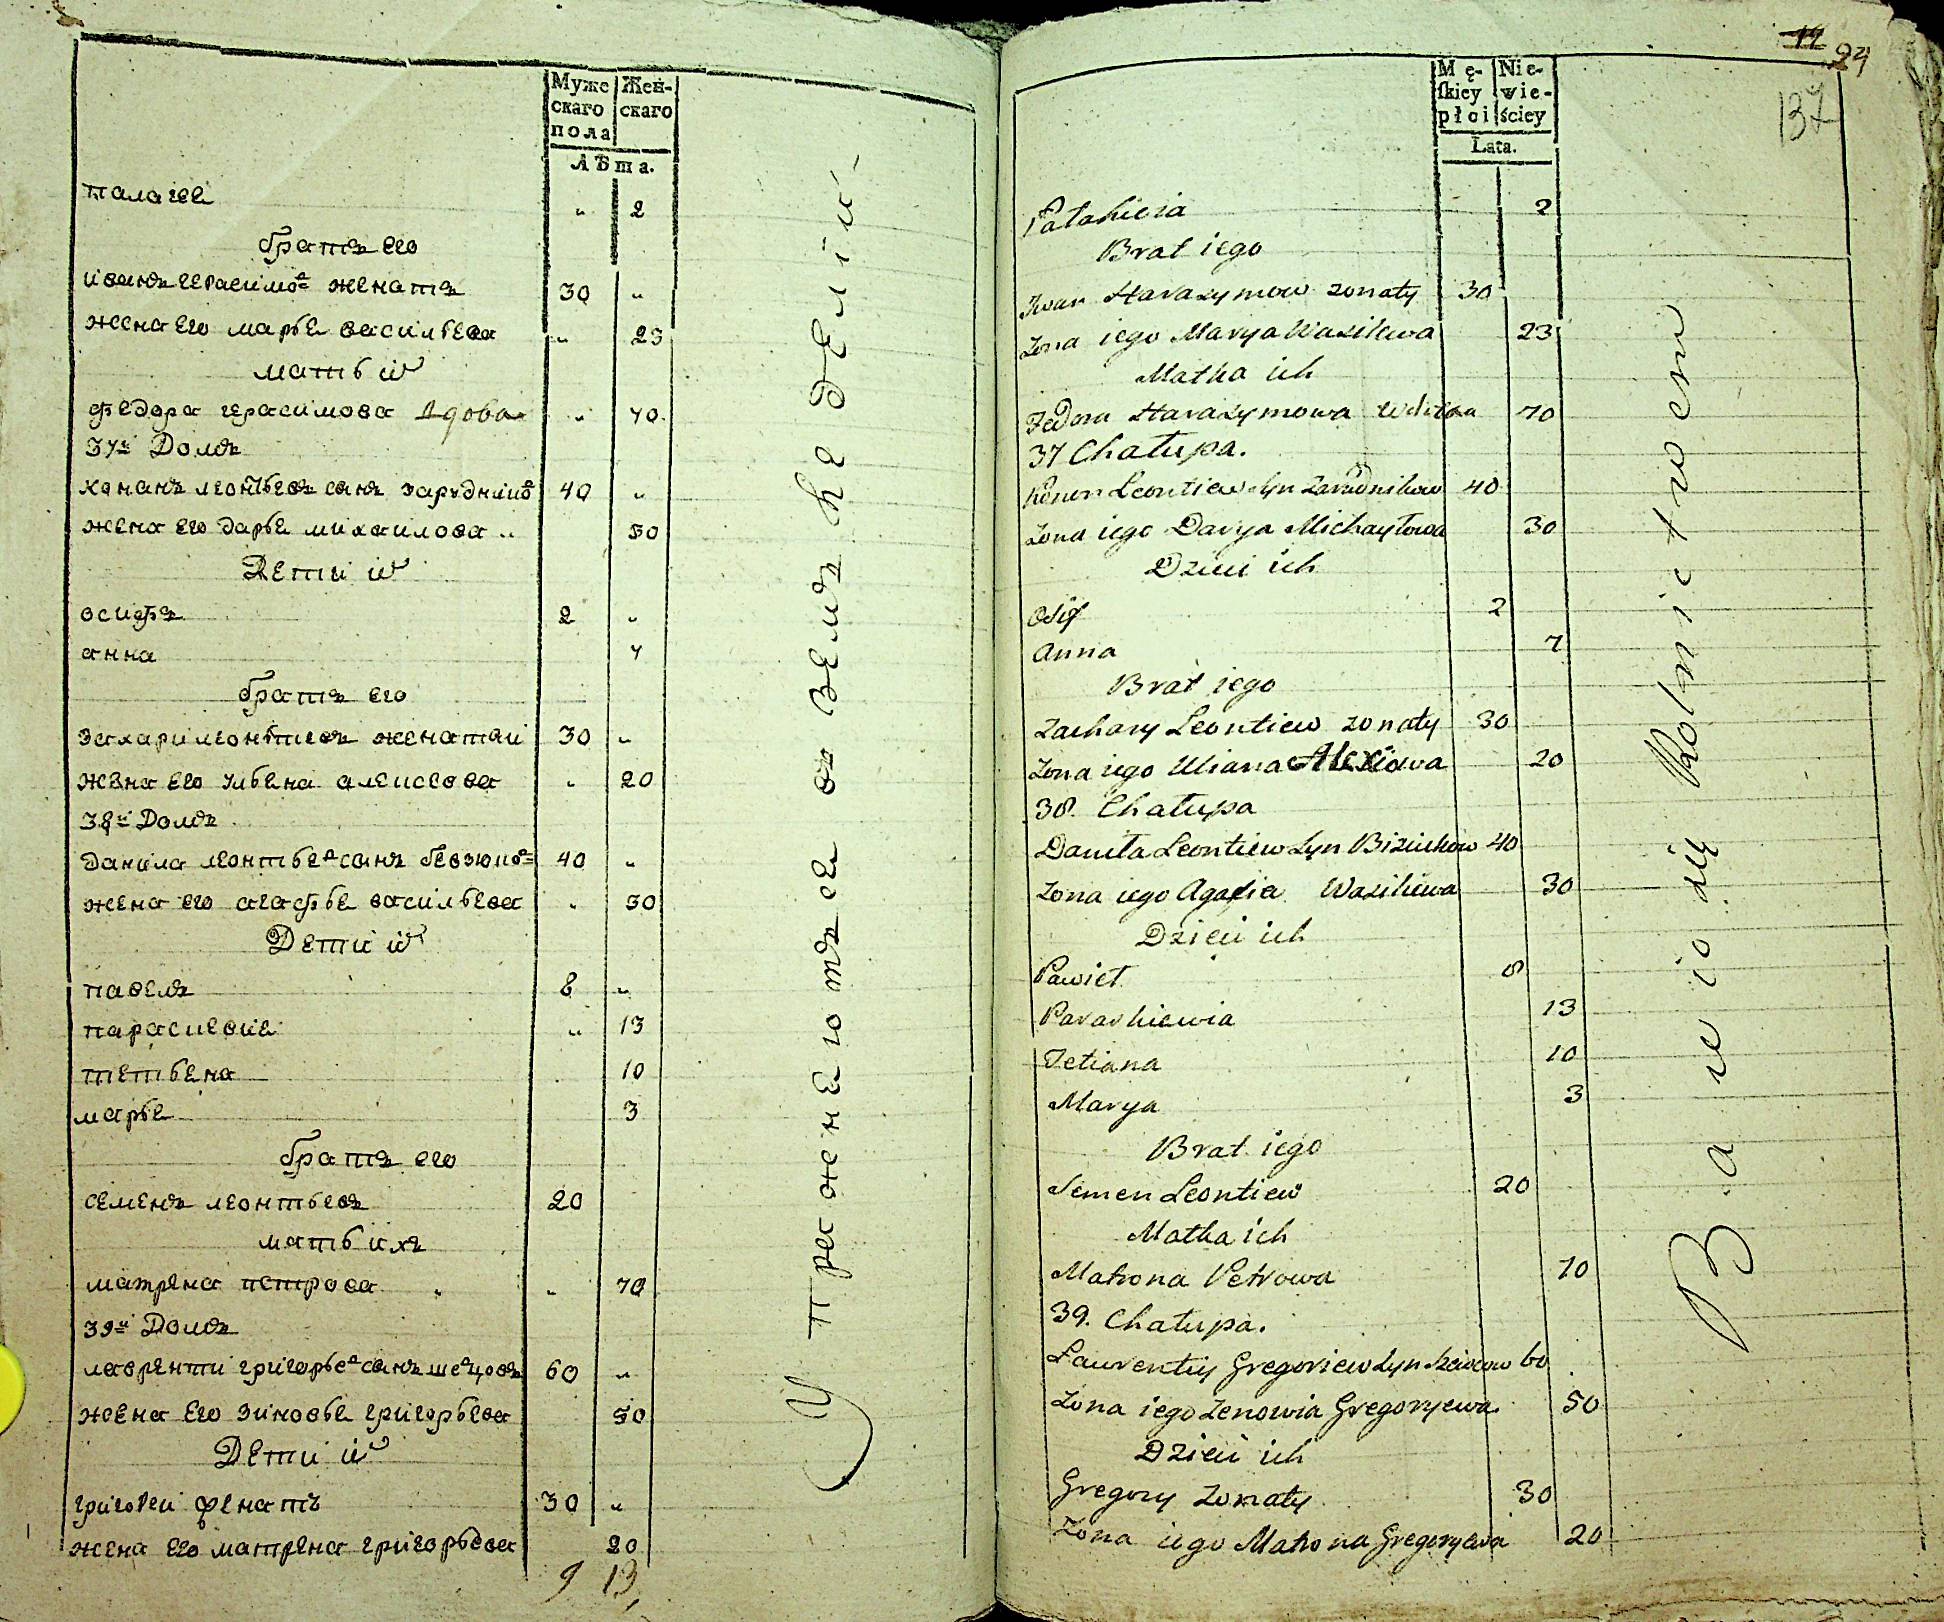 Муже Жен-
скаго скаго
пола
Лѣта.
палагея " 2
братъ его
иванъ герасимовъ женатъ 30 "
жена его марья васильева " 23
мать их
федора герасимова вдова " 70
37й Домъ
кананъ леонтьевъ сынъ зарудниковъ 40 "
жена его дарья михаилова " 30
Дети их
осифъ 2 "
анна 7
братъ его
захари леонтьевъ женатаи 30 "
жена его ульяна алексеева " 20
38й Домъ
данила леонтьев сынъ бевзюков 40 "
жена его агафья васильева " 30
Дети их
павелъ 8 "
парасиевия " 13
тетьяна 10
марья 3
братъ его
семенъ леонтьевъ 20
мать ихъ
матрена петрова " 70
39й Домъ
лаврентий григорьев сынъ шевцовъ 60 "
жена его зиновья григорьева 50
Дети их
григореи женатъ 30 "
жена его матрена григорьева 20
9 13
Упражнѣются в землѣделий
14 24
137
Mę- Nie-
skiey wie-
płci ściey
Lata.
Patahieia 2
Brat iego
Iwan Harazymow zonaty 30
Zona iego Marya Wasilewa 23
Matka ich
Fedora Harazymowa Wdowa 70
37 Chałupa.
Konon Leontiew syn Zarudnikow 40
Zona iego Darya Michayłowa 30
Dzieci ich
Osif 2
Anna 7
Brat iego
Zachary Leontiew zonaty 30
Zona iego Uliana Alexiowa 20
38. Chałupa
Daniła Leontiew Syn Biziukow 40
Zona iego Agafia Wasilewa 30
Dzieci ich
Pawieł 8
Paraskiewia 13
Tetiana 10
Marya 3
Brat iego
Semen Leontiew 20
Matka ich
Matrona Petrowa 70
39. Chałupa.
Laurentiy Gregoriew Syn Szewcow 60
Zona iego Zenowia Gregoryewa 50
Dzieci ich
Gregory zonaty 30
Zona iego Matrona Gregoryewa 20
Bawio się Rolnictwem